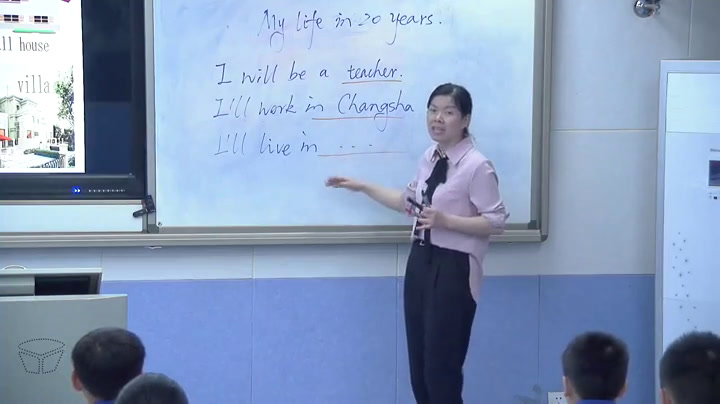 ll house
villa
My life in 20 years.
I will be a teacher.
I'll work in Changsha
I'll live in ...